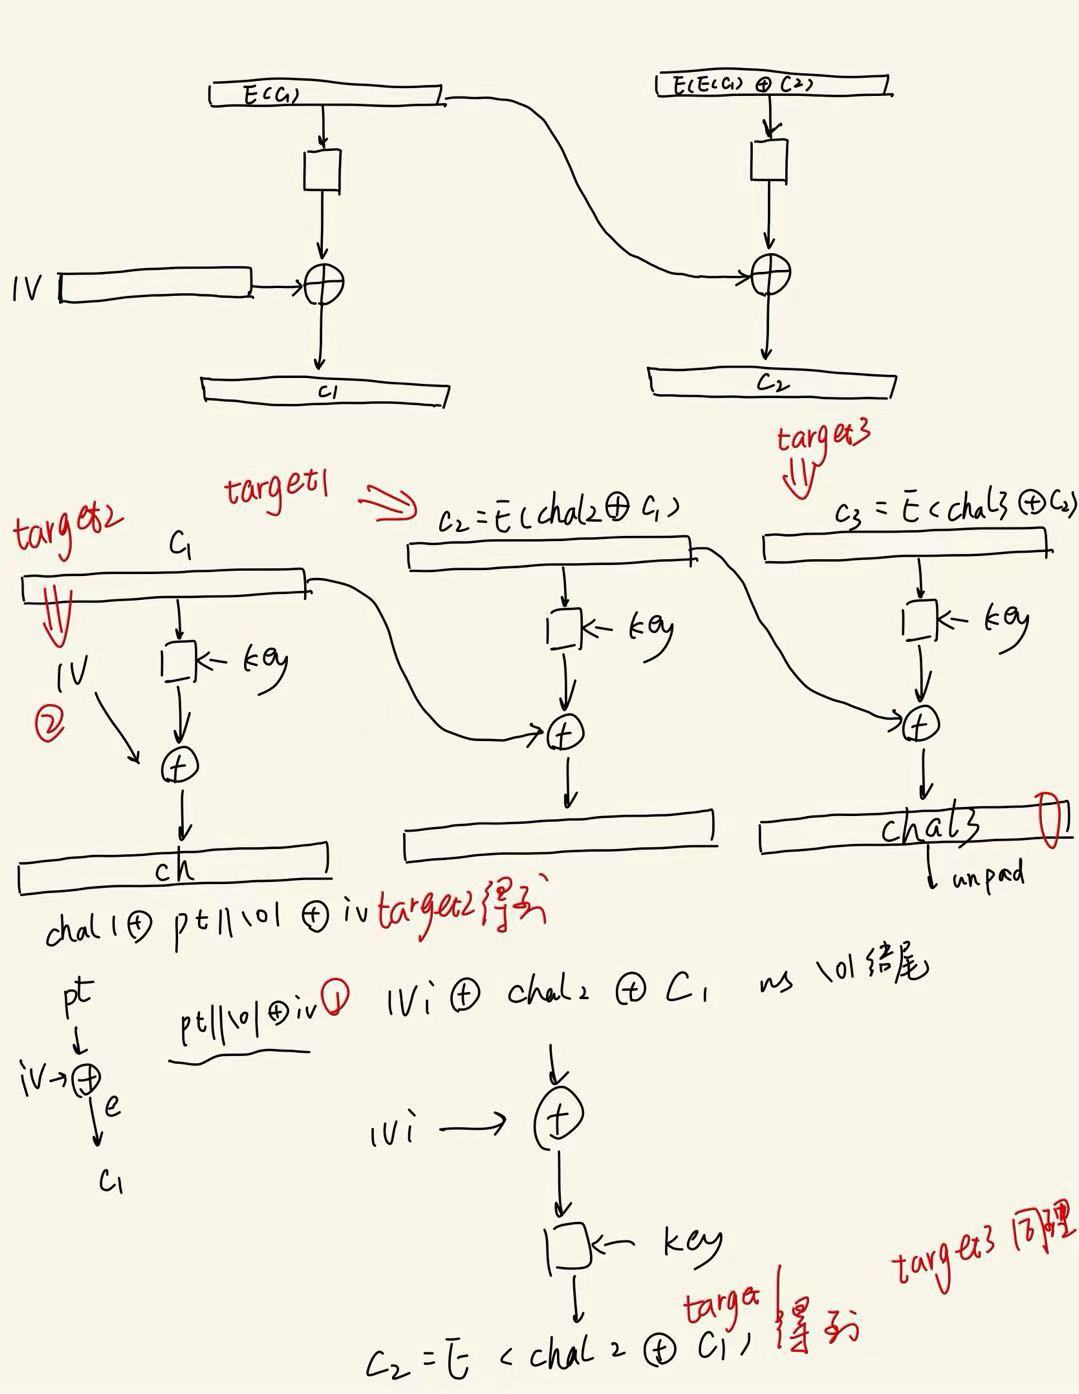 E(C1)
E(E(C1) ⊕ C2)
IV
C1
C2
target3
target1
target2
C1
C2 = E(chal2 ⊕ C1)
C3 = E(chal3 ⊕ C2)
IV
key
key
key
②
ch
chal3
unpad
chal1 ⊕ pt||\01 ⊕ iv target2得到
pt
pt||\01 ⊕ iv ①
IVi ⊕ chal2 ⊕ C1
\01结尾
iv
e
C1
IVi
key
target3 同理
target1得到
C2 = E(chal2 ⊕ C1)